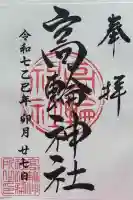 奉拝
高輪神社
令和七乙巳年卯月廿七日